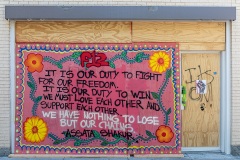 IT IS OUR DUTY TO FIGHT
FOR OUR FREEDOM.
IT IS OUR DUTY TO WIN.
WE MUST LOVE EACH OTHER AND
SUPPORT EACH OTHER
WE HAVE NOTHING TO LOSE
BUT OUR CHAINS
-ASSATA SHAKUR